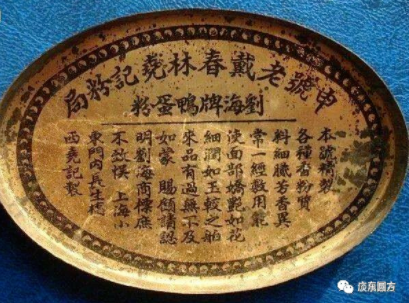 申號老戴春林堯記粉局
劉海牌鴨蛋粉
本號精製
各種香粉質
料細膩芳香異
常一經敷用能
使面部嬌艷如花
細潤如玉較之舶
來品有過無不及
如蒙 賜顧請認
明劉海商標庶
不致悞 上海小
東門內長生橋
西堯記製